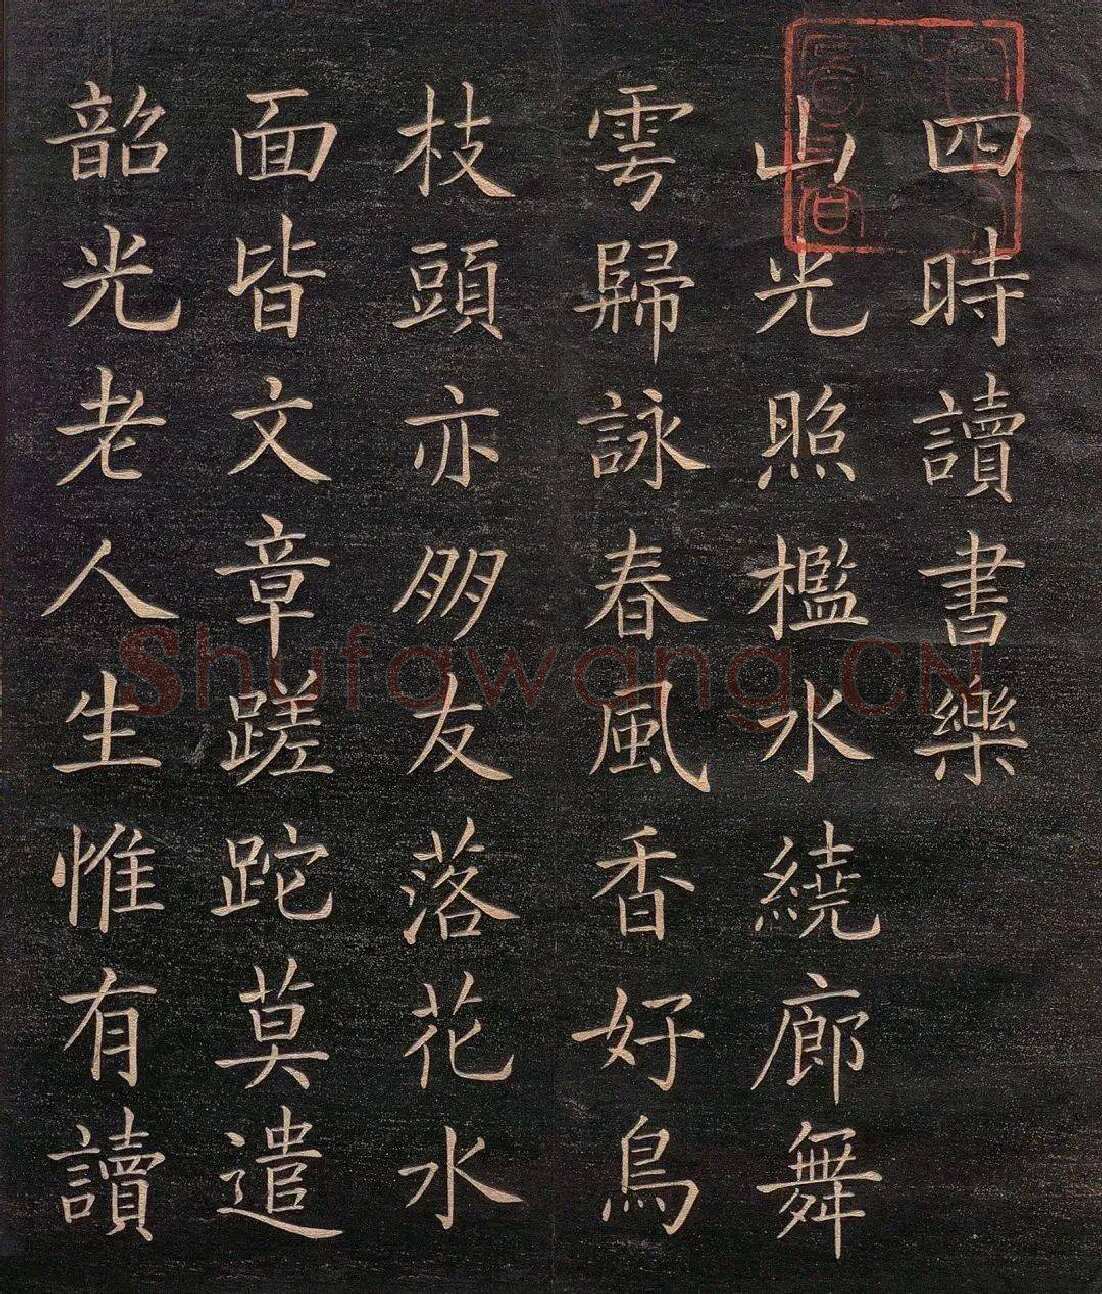 四時讀書樂
山光照檻水繞廊舞
雩歸詠春風香好鳥
枝頭亦朋友落花水
面皆文章蹉跎莫遣
韶光老人生惟有讀
Shufawang.CN